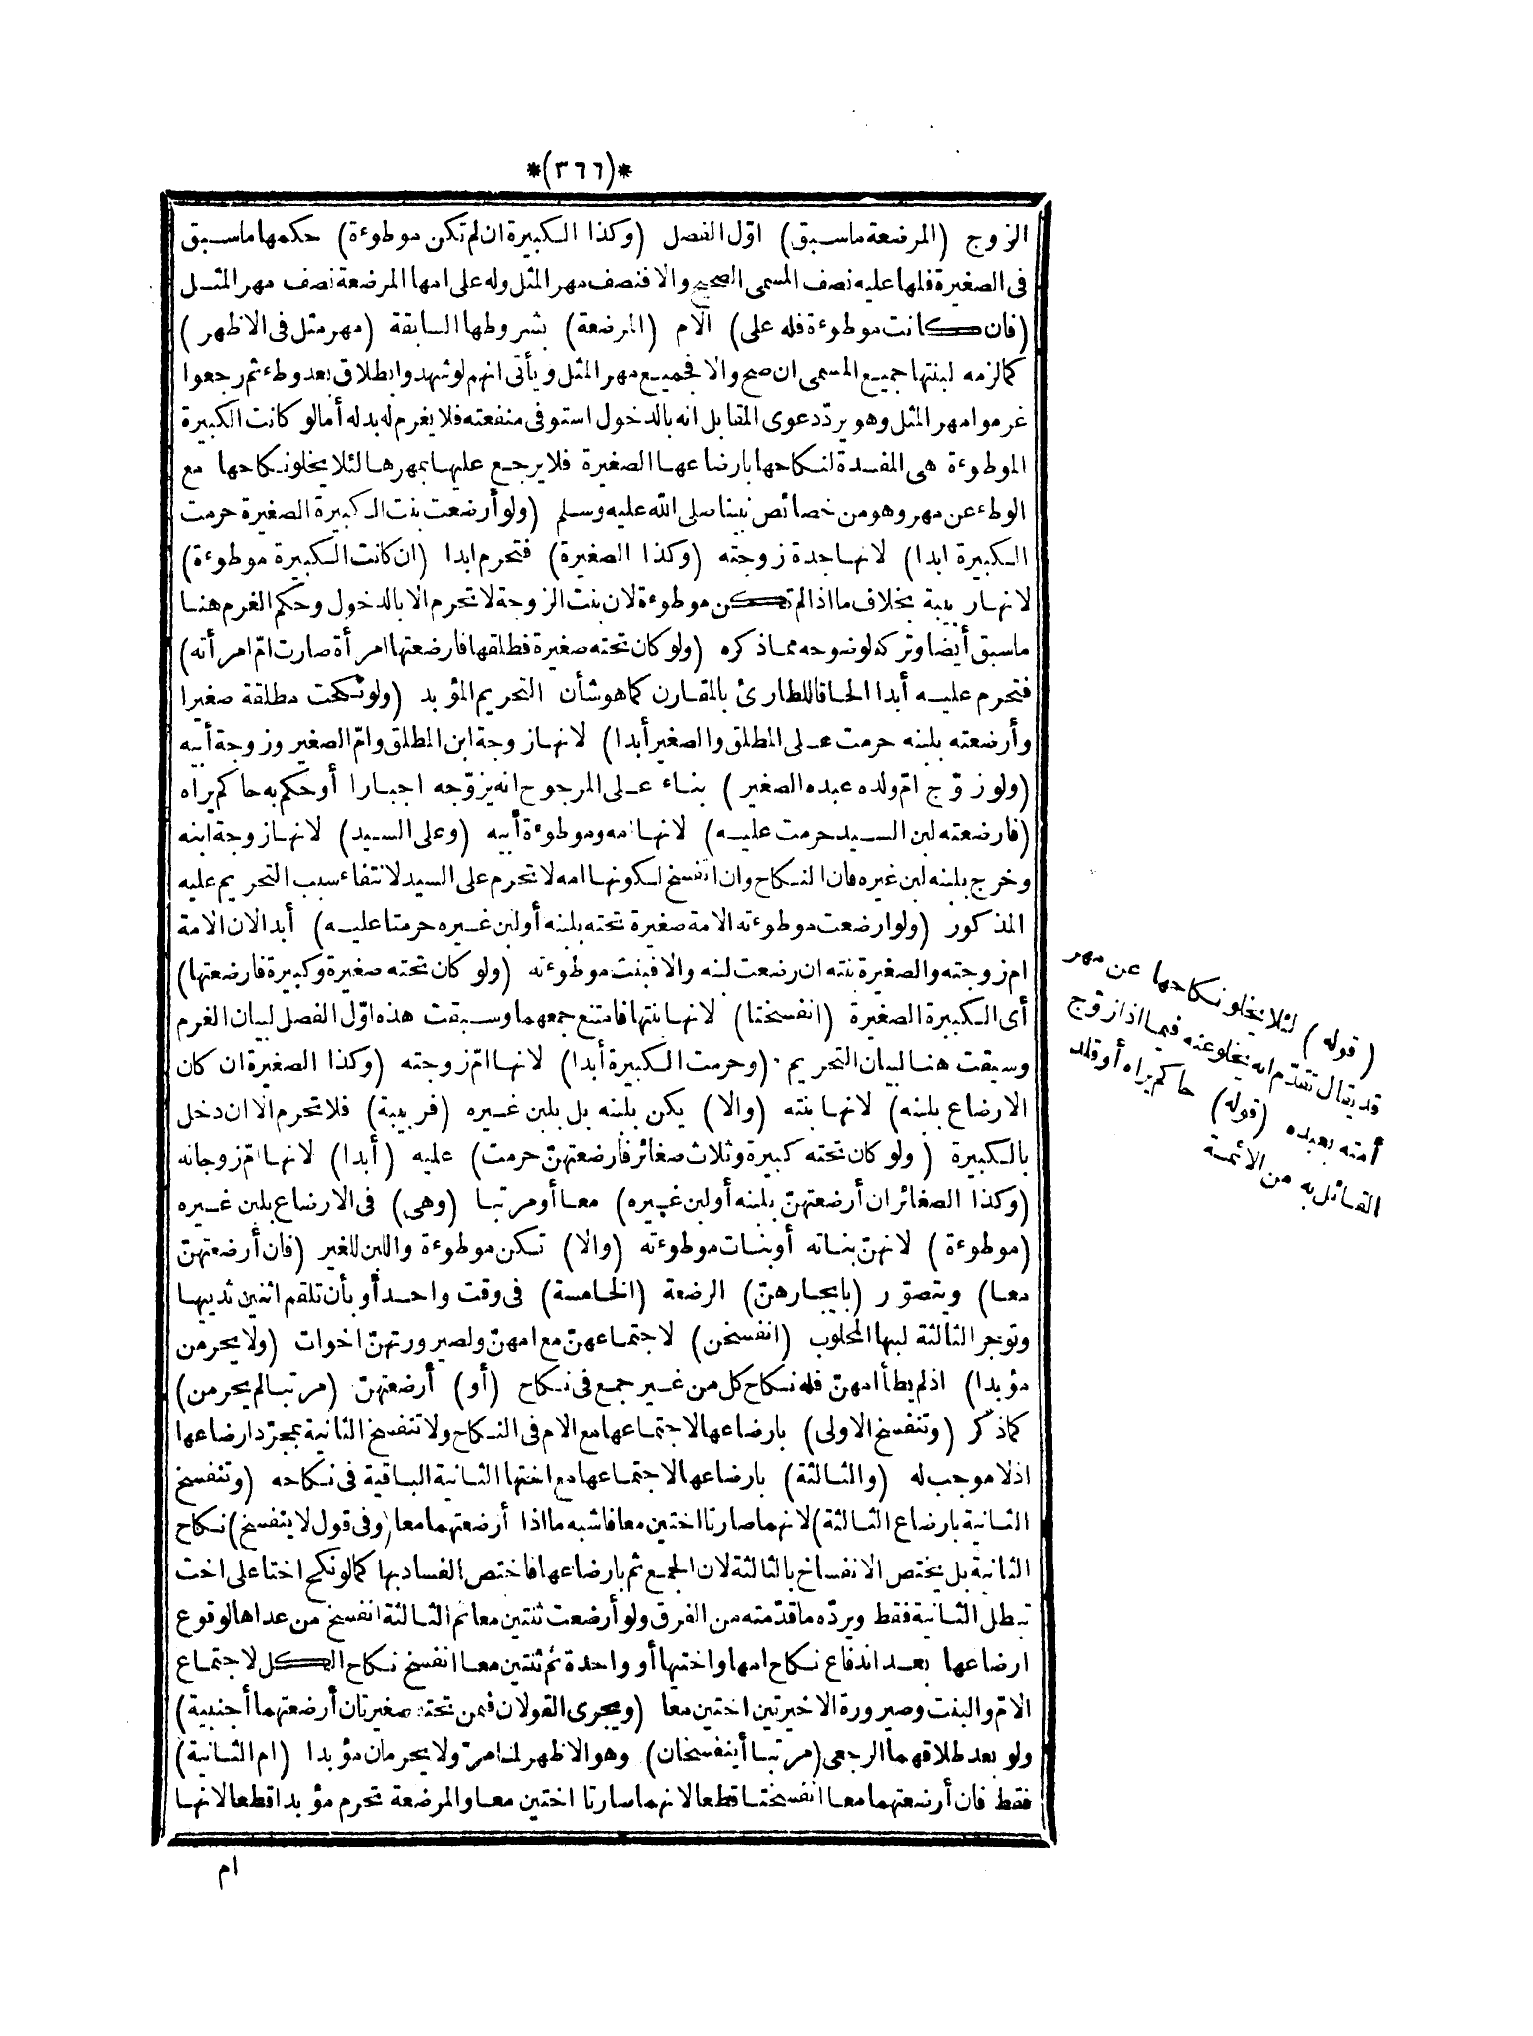 *(٣٦٦)*
الزوج (المرضعة ماسبق) اوّل الفصل (وكذا الكبيرة ان لم تكن موطوءة) حكمها ماسبق
فى الصغيرة فلها عليه نصف المسمى الصحيح والافنصف مهر المثل وله على امها المرضعة نصف مهر المثل
(فان كانت موطوءة فله على) الام (المرضعة) بشروطها السابقة (مهر مثل فى الاظهر)
كما لزمه لبنتها جميع المسمى ان صح والا فجميع مهر المثل ويأتى انهم لو شهدوا بطلاق بعد وطء ثم رجعوا
غرموا مهر المثل وهو يردّ دعوى المقابل انه بالدخول استوفى منفعته فلا يغرم له بدله أما لو كانت الكبيرة
الموطوءة هى المفسدة لنكاحها بارضاعها الصغيرة فلا يرجع عليها بمهرها لئلا يخلو نكاحها مع
الوطء عن مهر وهو من خصائص نبينا صلى الله عليه وسلم (ولو أرضعت بنت الكبيرة الصغيرة حرمت
الكبيرة ابدا) لانها جدة زوجته (وكذا الصغيرة) فتحرم ابدا (ان كانت الكبيرة موطوءة)
لانها ربيبة بخلاف ما اذا لم تكن موطوءة لان بنت الزوجة لا تحرم الا بالدخول وحكم الغرم هنا
ماسبق أيضا وتركه لوضوحه مما ذكره (ولو كان تحته صغيرة فطلقها فأرضعتها امرأة صارت امّ امرأته)
فتحرم عليه أبدا الحاقا للطارئ بالمقارن كما هو شأن التحريم المؤبد (ولو نكحت مطلقة صغيرا
وأرضعته بلبنه حرمت على المطلق والصغير أبدا) لانها زوجة ابن المطلق وامّ الصغير وزوجة أبيه
(ولو زوّج امّ ولده عبده الصغير) بناء على المرجوح انه يزوّجه اجبارا أو حكم به حاكم يراه
(فارضعته لبن السيد حرمت عليه) لانها امه وموطوءة أبيه (وعلى السيد) لانها زوجة ابنه
وخرج بلبنه لبن غيره فان النكاح وان انفسخ لكونها امه لا تحرم على السيد لانتفاء سبب التحريم عليه
المذكور (ولو ارضعت موطوءته الامة صغيرة تحته بلبنه أو لبن غيره حرمتا عليه) أبدا لان الامة
ام زوجته والصغيرة بنته ان رضعت لبنه والا فبنت موطوءته (ولو كان تحته صغيرة وكبيرة فارضعتها)
أى الكبيرة الصغيرة (انفسختا) لانها بنتها فامتنع جمعهما وسبقت هذه اوّل الفصل لبيان الغرم
وسيقت هنا لبيان التحريم (وحرمت الكبيرة أبدا) لانها امّ زوجته (وكذا الصغيرة ان كان
الارضاع بلبنه) لانها بنته (والا) يكن بلبنه بل بلبن غيره (فربيبة) فلا تحرم الا ان دخل
بالكبيرة (ولو كان تحته كبيرة وثلاث صغائر فارضعتهنّ حرمت) عليه (أبدا) لانها امّ زوجاته
(وكذا الصغائر ان أرضعتهنّ بلبنه أو لبن غيره) معا أو مرتبا (وهى) فى الارضاع بلبن غيره
(موطوءة) لانهنّ بناته أو بنات موطوءته (والا) تكن موطوءة واللبن للغير (فان أرضعتهنّ
معا) ويتصوّر (بايجارهنّ) الرضعة (الخامسة) فى وقت واحد أو بأن تلقم اثنين ثدييها
وتوجر الثالثة لبنها المحلوب (انفسخن) لاجتماعهنّ مع امهنّ ولصيرورتهنّ اخوات (ولا يحرمن
مؤبدا) اذ لم يطأ امهنّ فله نكاح كل من غير جمع فى نكاح (أو) أرضعتهنّ (مرتبا لم يحرمن)
كما ذكر (وتنفسخ الاولى) بارضاعها لاجتماعها مع الام فى النكاح ولا تنفسخ الثانية بمجرّد ارضاعها
اذ لا موجب له (والثالثة) بارضاعها لاجتماعها مع اختها الثانية الباقية فى نكاحه (وتنفسخ
الثانية بارضاع الثالثة) لانهما صارتا اختين معا فاشبه ما اذا أرضعتهما معا (وفى قول لا ينفسخ) نكاح
الثانية بل يختص الانفساخ بالثالثة لان الجمع تم بارضاعها فاختص الفساد بها كما لو نكح اختا على اخت
تبطل الثانية فقط ويردّه ما قدّمته من الفرق ولو أرضعت ثنتين معا ثم الثالثة انفسخ من عداها لوقوع
ارضاعها بعد اندفاع نكاح امها واختيها أو واحدة ثم ثنتين معا انفسخ نكاح الكل لاجتماع
الامّ والبنت وصيرورة الاخيرتين اختين معا (ويجرى القولان فيمن تحته صغيرتان أرضعتهما أجنبية)
ولو بعد طلاقهما الرجعى (مرتبا أينفسخان) وهو الاظهر لما مرّ ولا يحرمان مؤبدا (ام الثانية)
فقط فان أرضعتهما معا انفسختا قطعا لانهما صارتا اختين معا والمرضعة تحرم مؤبدا قطعا لانها
ام
(قوله) لئلا يخلو نكاحها عن مهر
قد يقال تقدّم انه يخلو عنه فيما اذا زوّج
أمته بعبده (قوله) حاكم يراه أو قلد
القائل به من الأئمة